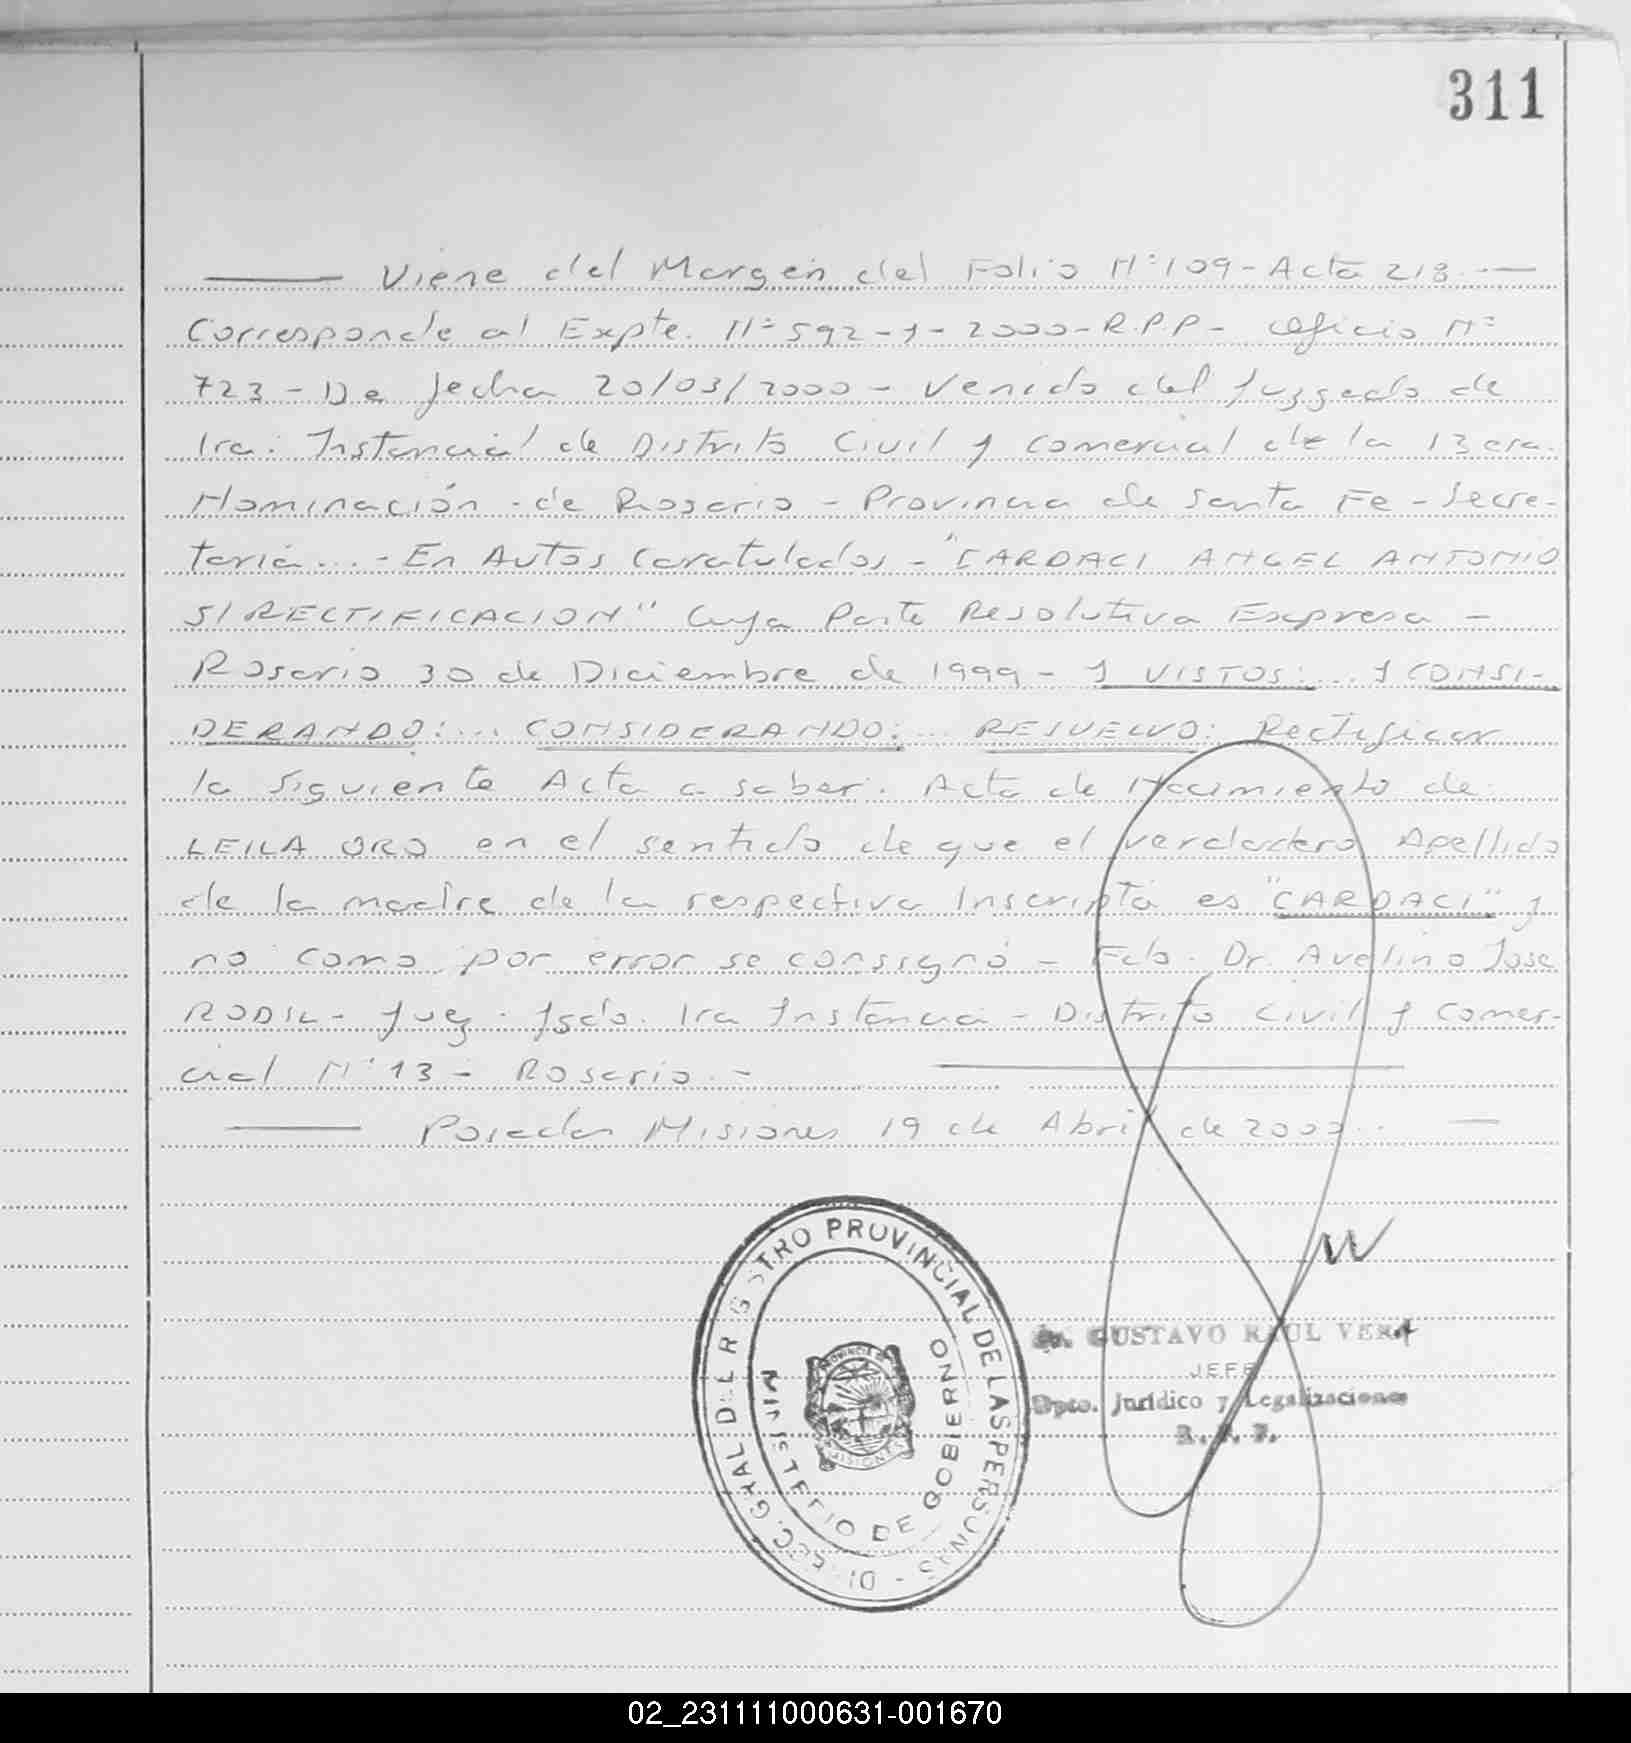 311
Viene del Margen del Folio N° 109 - Acta 218.-
Corresponde al Expte. N° 592-1-2000-R.P.P- Oficio N°
723 - De fecha 20/03/2000 - Venido del Juzgado de
1ra. Instancial de Distrito Civil y Comercial de la 13era.
Nominación - de Rosario - Provincia de Santa Fe - Secre-
taria... - En Autos Caratulados - "CARDACI ANGEL ANTONIO
S/RECTIFICACION" Cuya Parte Resolutiva Expresa -
Rosario 30 de Diciembre de 1999 - Y VISTOS:... Y CONSI-
DERANDO:... CONSIDERANDO:... RESUELVO: Rectificar
la Siguiente Acta a saber: Acta de Nacimiento de
LEILA ORO en el sentido de que el verdadero Apellido
de la madre de la respectiva Inscripta es "CARDACI" y
no como por error se consignó - Fdo. Dr. Avelino Jose
RODIL - Juez - Jsdo. 1ra Instancia - Distrito Civil y Comer-
cial N° 13 - Rosario. -
Posadas Misiones 19 de Abril de 2000..
DIREC. GRAL DEL REGISTRO PROVINCIAL DE LAS PERSONAS -
MINISTERIO DE GOBIERNO
PROVINCIA DE
MISIONES
Dr. GUSTAVO RAUL VERA
JEFE
Dpto. Jurídico y Legalizaciones
R. P. P.
02_231111000631-001670